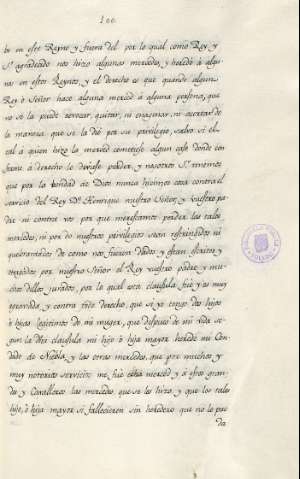 100.
bo en este Reyno y fuera del por lo qual como Rey y
Sr. agradecido nos hizo algunas mercedes, y heredó á algu-
nos en estos Reynos, y el derecho es que quando algun
Rey ó Señor hace alguna merced á alguna persona, que
no se la puede revocar, quitar, ni enagenar, ni acortar de
la manera que se la dió por su privilegio, salvo si el
tal á quien hizo la merced cometiese algun caso donde con-
forme á derecho le devese perder, y nosotros Sr. tenemos
que por la bondad de Dios nunca hicimos cosa contra el
servicio del Rey Dn. Henrique nuestro Señor, y vuestro pa-
dre ni contra vos por que merescamos perder las tales
mercedes, ni por do nuestros privilegios sean restringidos ni
quebrantados de como nos fueron dados y estan escritos y
otorgados por nuestro Señor el Rey vuestro padre y mu-
chos dellos jurados, por la qual esta clausula fué y es muy
agraviada, y contra todo derecho, que si yo tengo dos hijos
ó hijas legitimos de mi muger, que despues de mi vida se-
gun la dha clausula mi hijo ó hija mayor herede mi Con-
dado de Niebla, y las otras mercedes, que por muchos y
muy notorios servicios me fué echa merced y á otros gran-
des y Cavalleros las mercedes que se les hizo, y que los tales
hijo, ó hija mayor si fallecieren sin heredero que no lo pue-
da